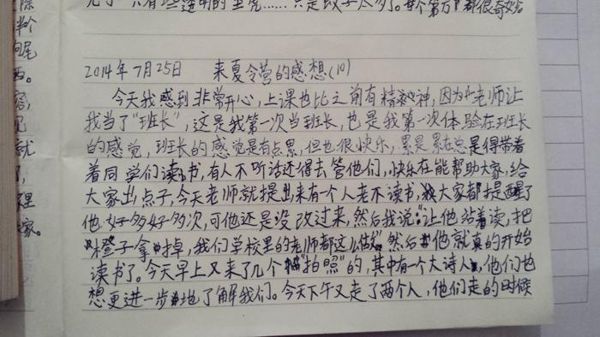 2014年7月25日 来夏令营的感想(10)
今天我感到非常开心,上课也比之前有精神,因为老师让
我当了"班长",这是我第一次当班长,也是我第一次体验在班长
的感觉,班长的感觉是有点累,但也很快乐,累是累在总是得带着
着同学们读书,有人不听话还得去管他们,快乐在能帮助大家,给
大家出点子,今天老师就提出来有一个人老不读书,大家都提醒了
他好多好多次,可他还是没改过来,然后我说:"让他站着读,把
凳子拿掉,我们学校里的老师都这么做"然后他就真的开始
读书了。今天早上又来了几个"拍照"的,其中有一个大诗人,他们也
想更进一步地了解我们。今天下午又走了两个人,他们走的时候